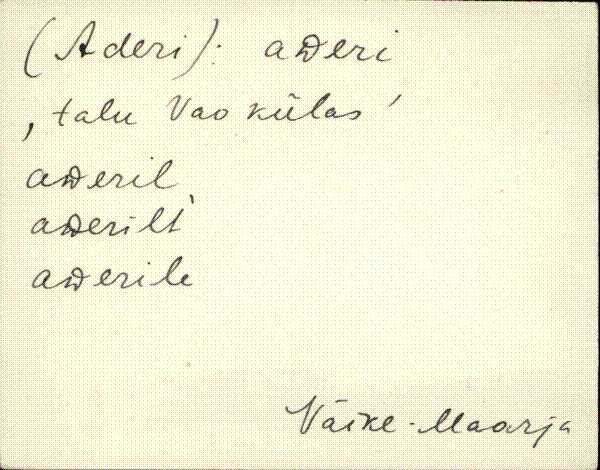 (Aderi): aᴅeri
‚talu Vao külas’
aᴅeril
aᴅerilt
aᴅerile
Väike-Maarja